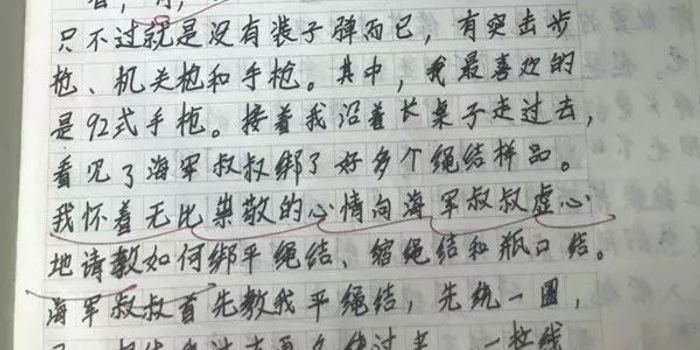 只不过就是没有装子弹而已，有突击步
枪、机关枪和手枪。其中，我最喜欢的
是92式手枪。接着我沿着长桌子走过去，
看见了海军叔叔绑了好多个绳结样品。
我怀着无比崇敬的心情向海军叔叔虚心
地请教如何绑平绳结、缩绳结和瓶口结。
海军叔叔首先教我平绳结，先绕一圈，